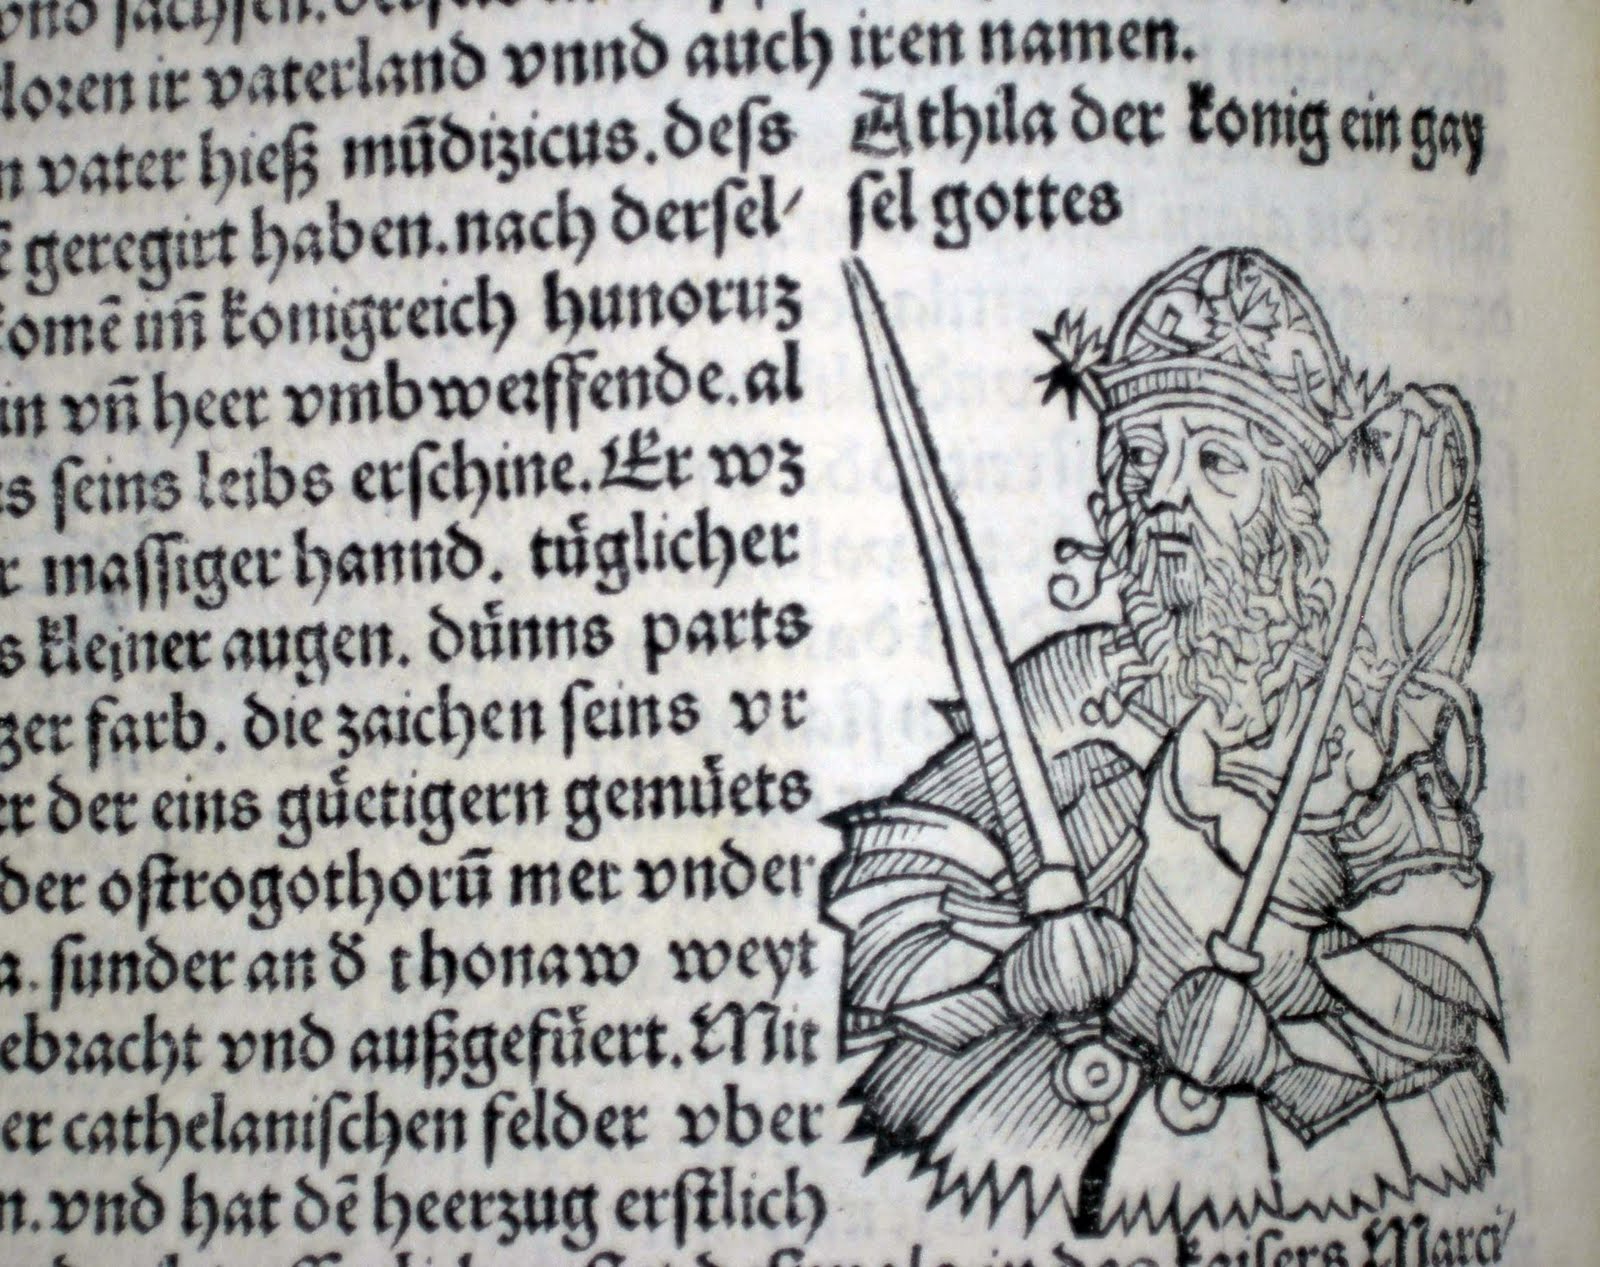 vnd sachsen.
loren ir vaterland vnnd auch iren namen.
Athila der konig ein gay
sel gottes
n vater hieß mūdizicus. dess
geregirt haben. nach dersel/
komē im̄ konigreich hunoruz
in vn̄ heer vmbwerffende. al
s seins leibs erschine. Er wz
r massiger hannd. tüglicher
s kleiner augen. dünns parts
zer farb. die zaichen seins vr
er der eins güetigern gemüets
der ostrogothorū mer vnder
a. sunder an d̄ thonaw weyt
ebracht vnd außgefüert. Mit
er cathelanischen felder vber
n. vnd hat dē heerzug erstlich
in des kaisers Marci/